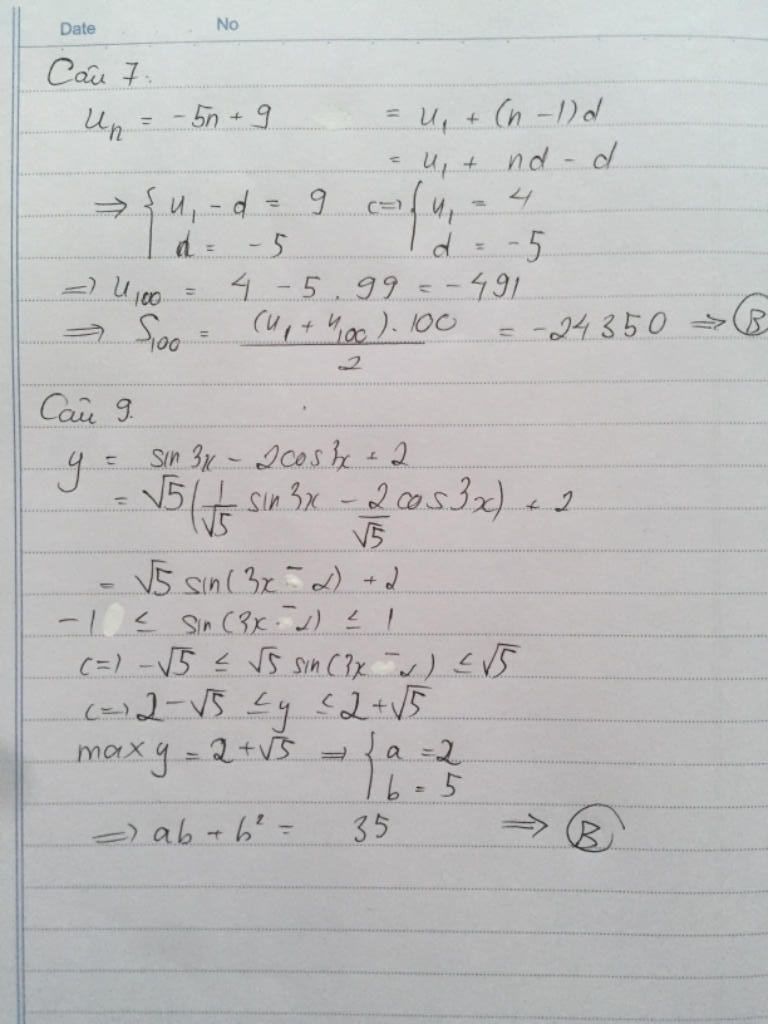 Date No
Câu 7.
uₙ = -5n + 9 = u₁ + (n - 1)d
= u₁ + nd - d
=> { u₁ - d = 9 <=> { u₁ = 4
d = -5 d = -5
=> u₁₀₀ = 4 - 5 . 99 = -491
=> S₁₀₀ = (u₁ + u₁₀₀) . 100 / 2 = -24350 => B
Câu 9.
y = sin 3x - 2cos 3x + 2
= √5 (1/√5 sin 3x - 2/√5 cos 3x) + 2
= √5 sin(3x - α) + 2
-1 ≤ sin(3x - α) ≤ 1
<=> -√5 ≤ √5 sin(3x - α) ≤ √5
<=> 2 - √5 ≤ y ≤ 2 + √5
max y = 2 + √5 => { a = 2
b = 5
=> ab + b² = 35 => B